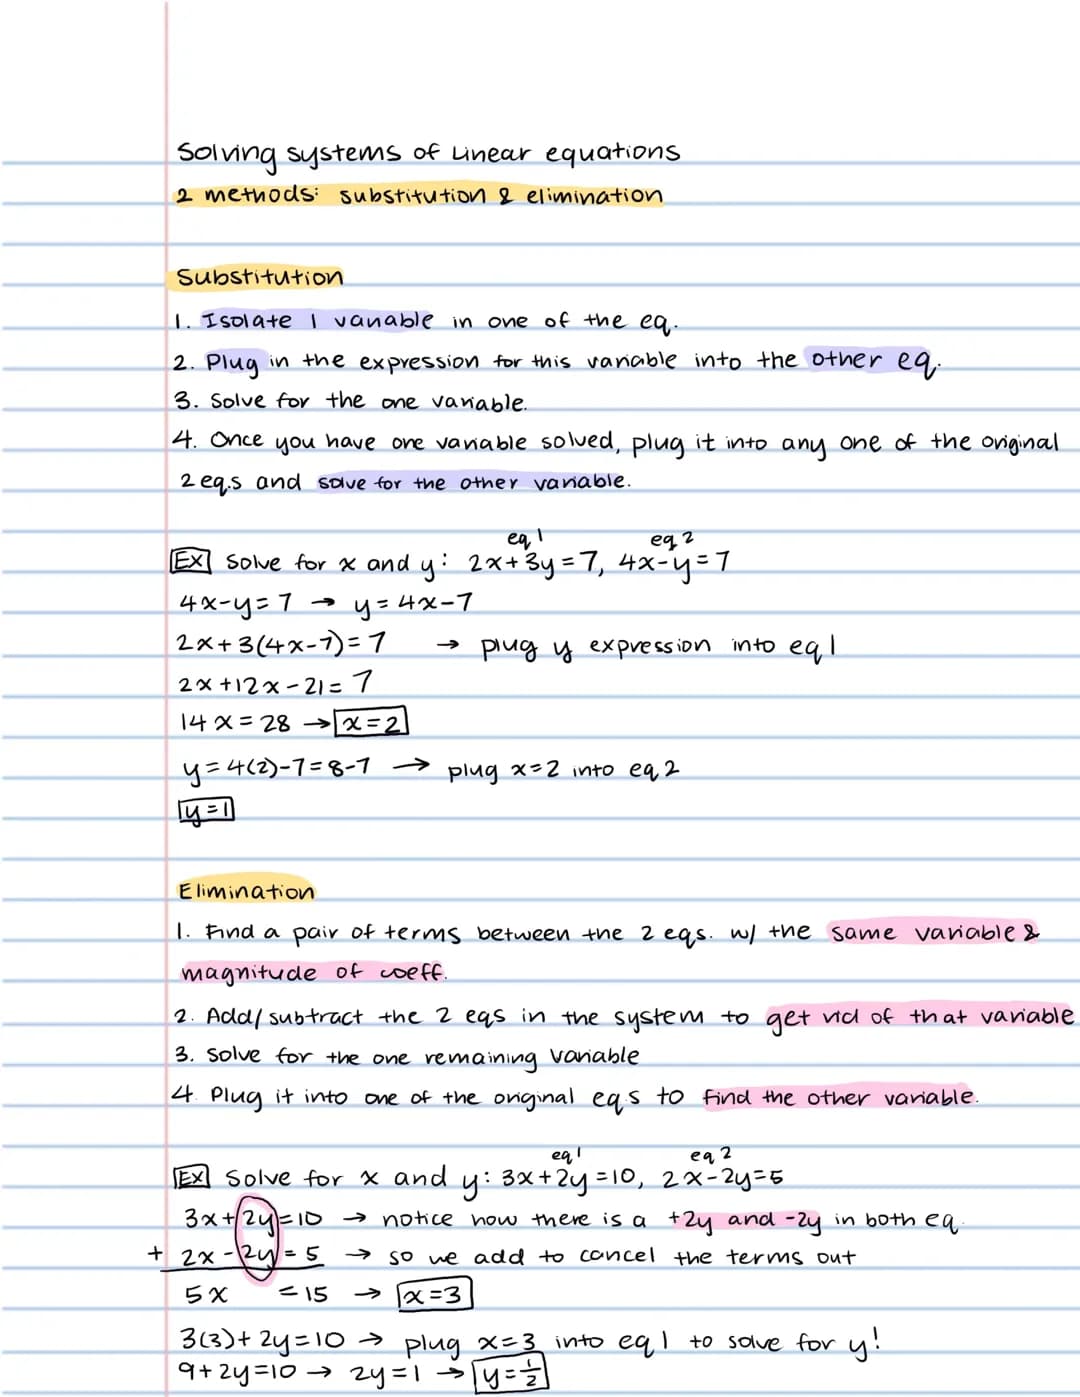 Solving systems of Linear equations
2 methods: substitution & elimination
Substitution
1. Isolate 1 variable in one of the eq.
2. Plug in the expression for this variable into the other eq.
3. Solve for the one variable.
4. Once you have one variable solved, plug it into any one of the original
2 eq.s and solve for the other variable.
eq 1 eq 2
EX Solve for x and y: 2x+3y=7, 4x-y=7
4x-y=7 → y=4x-7
2x+3(4x-7)=7 → plug y expression into eq 1
2x+12x-21=7
14x=28 → x=2
y=4(2)-7=8-7 → plug x=2 into eq 2
y=1
Elimination
1. Find a pair of terms between the 2 eqs. w/ the same variable &
magnitude of coeff.
2. Add/subtract the 2 eqs in the system to get rid of that variable
3. Solve for the one remaining variable
4. Plug it into one of the original eqs to find the other variable.
eq 1 eq 2
EX Solve for x and y: 3x+2y=10, 2x-2y=5
3x+2y=10 → notice how there is a +2y and -2y in both eq.
+ 2x-2y=5 → so we add to cancel the terms out
5x =15 → x=3
3(3)+2y=10 → plug x=3 into eq 1 to solve for y!
9+2y=10 → 2y=1 → y=1/2